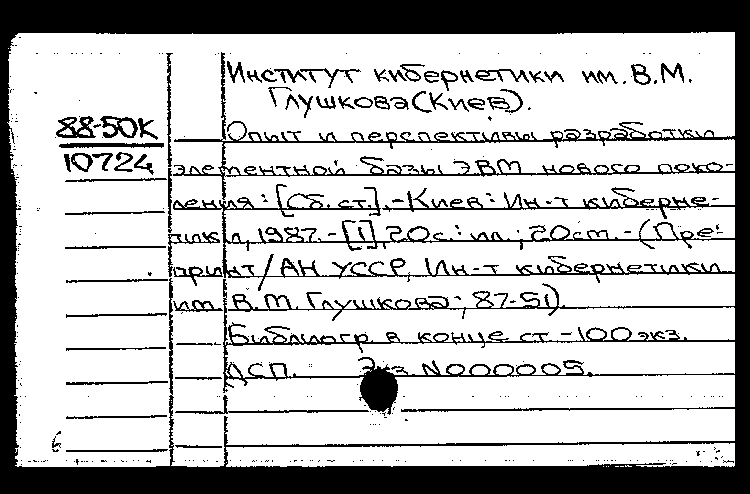 Институт кибернетики им. В.М.
Глушкова (Киев).
88-50К
10724
Опыт и перспективы разработки
элементной базы ЭВМ нового поко-
ления : [Сб. ст.]. - Киев : Ин-т киберне-
тики, 1987. - [1], 20 с. : ил. ; 20 см. - (Пре-
принт / АН УССР, Ин-т кибернетики
им. В.М. Глушкова ; 87-51).
Библиогр. в конце ст. - 100 экз.
ДСП. Экз. N000005.
6